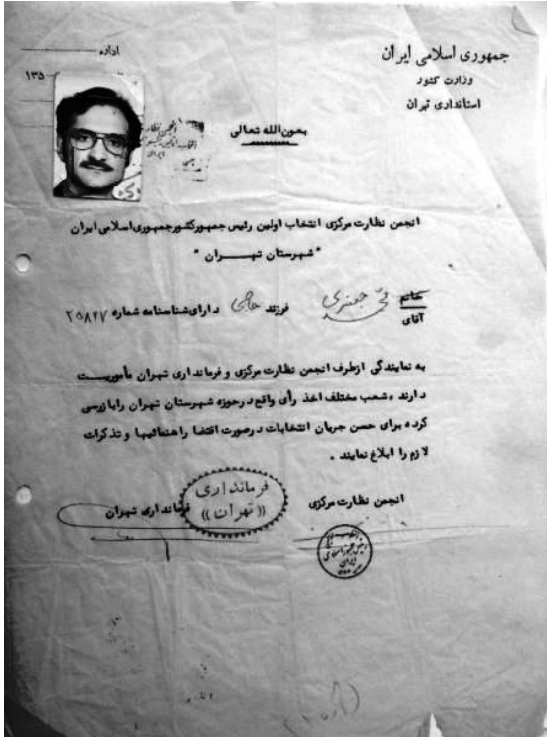 جمهوری اسلامی ایران
وزارت کشور
استانداری تهران
اداره
۱۳۵
بعون‌الله تعالی
انجمن نظارت مرکزی انتخاب اولین رئیس جمهورکشورجمهوری اسلامی ایران
"شهرستان تهــــران"
خانم
آقای جعفری فرزند حاجی دارای شناسنامه شماره ۲۵۸۲۷
به نمایندگی ازطرف انجمن نظارت مرکزی و فرمانداری تهران مأموریـــت
دارند ،شعب مختلف اخذ رأی واقع درحوزه شهرستان تهران رابازرسی
کرده برای حسن جریان انتخابات درصورت اقتضا راهنمائیها و تذکرات
لازم را ابلاغ نمایند .
انجمن نظارت مرکزی
فرمانداری تهران
فرمانداری
((تهران))